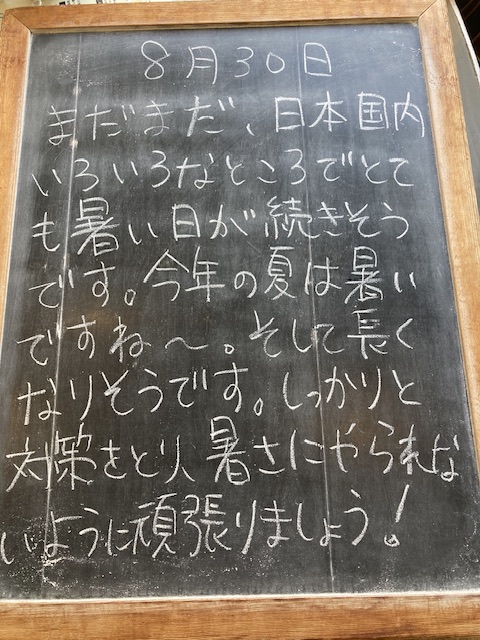 8月30日
まだまだ、日本国内
いろいろなところでとて
も暑い日が続きそう
です。今年の夏は暑い
ですね〜。そして長く
なりそうです。しっかりと
対策をとり、暑さにやられな
いように頑張りましょう!